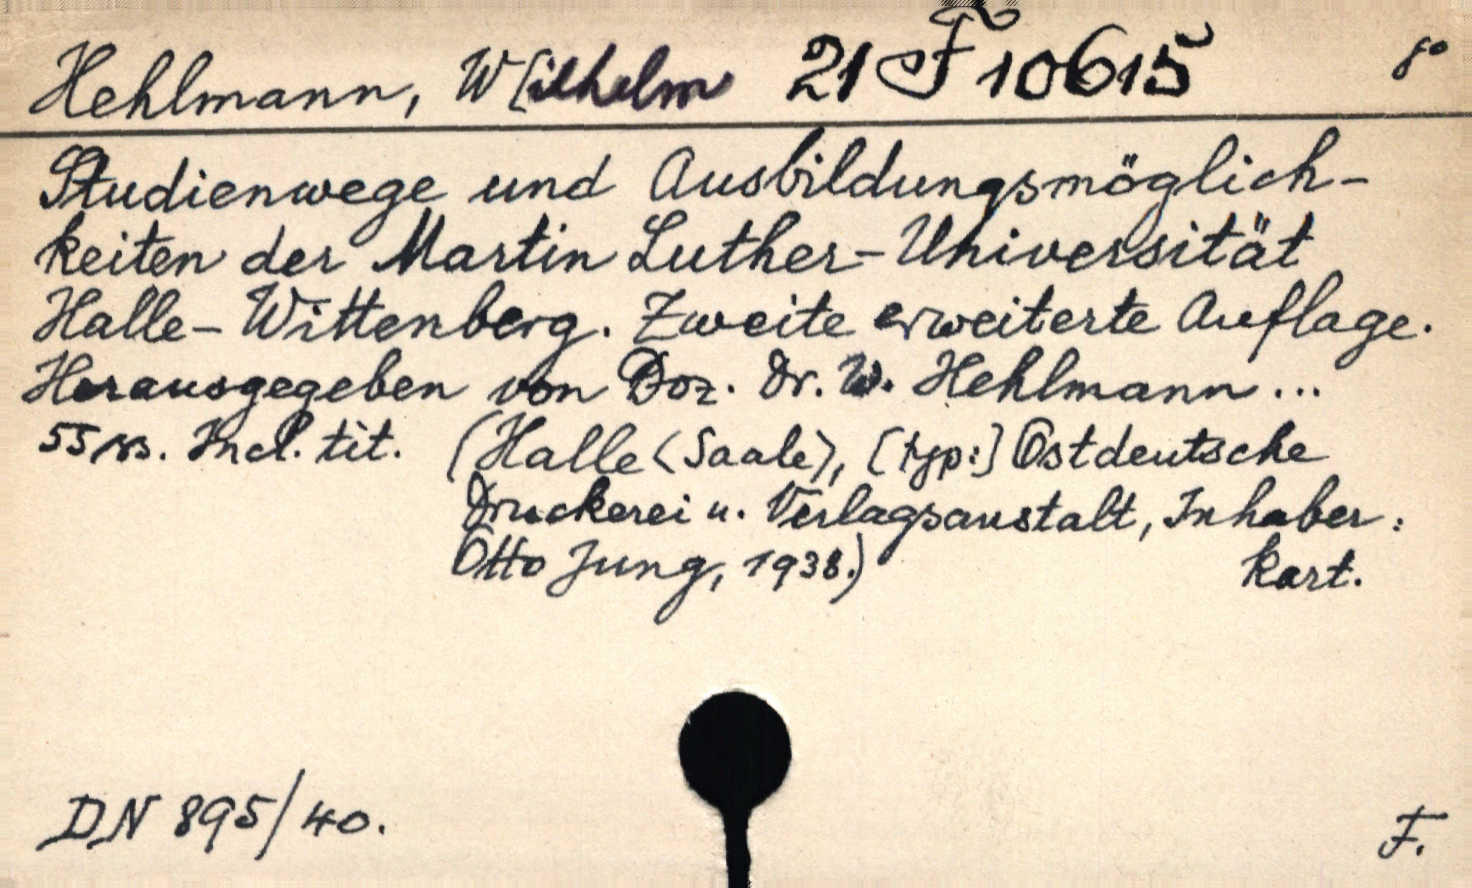 Hehlmann, W[ilhelm 21 F 10615 8°
Studienwege und Ausbildungsmöglich-
keiten der Martin Luther-Universität
Halle-Wittenberg. Zweite erweiterte Auflage.
Herausgegeben von Doz. Dr. W. Hehlmann ...
55 ss. Incl. tit. (Halle <Saale>, [typ:] Ostdeutsche
Druckerei u. Verlagsanstalt, Inhaber:
Otto Jung, 1938.) kart.
DN 895/40. F.